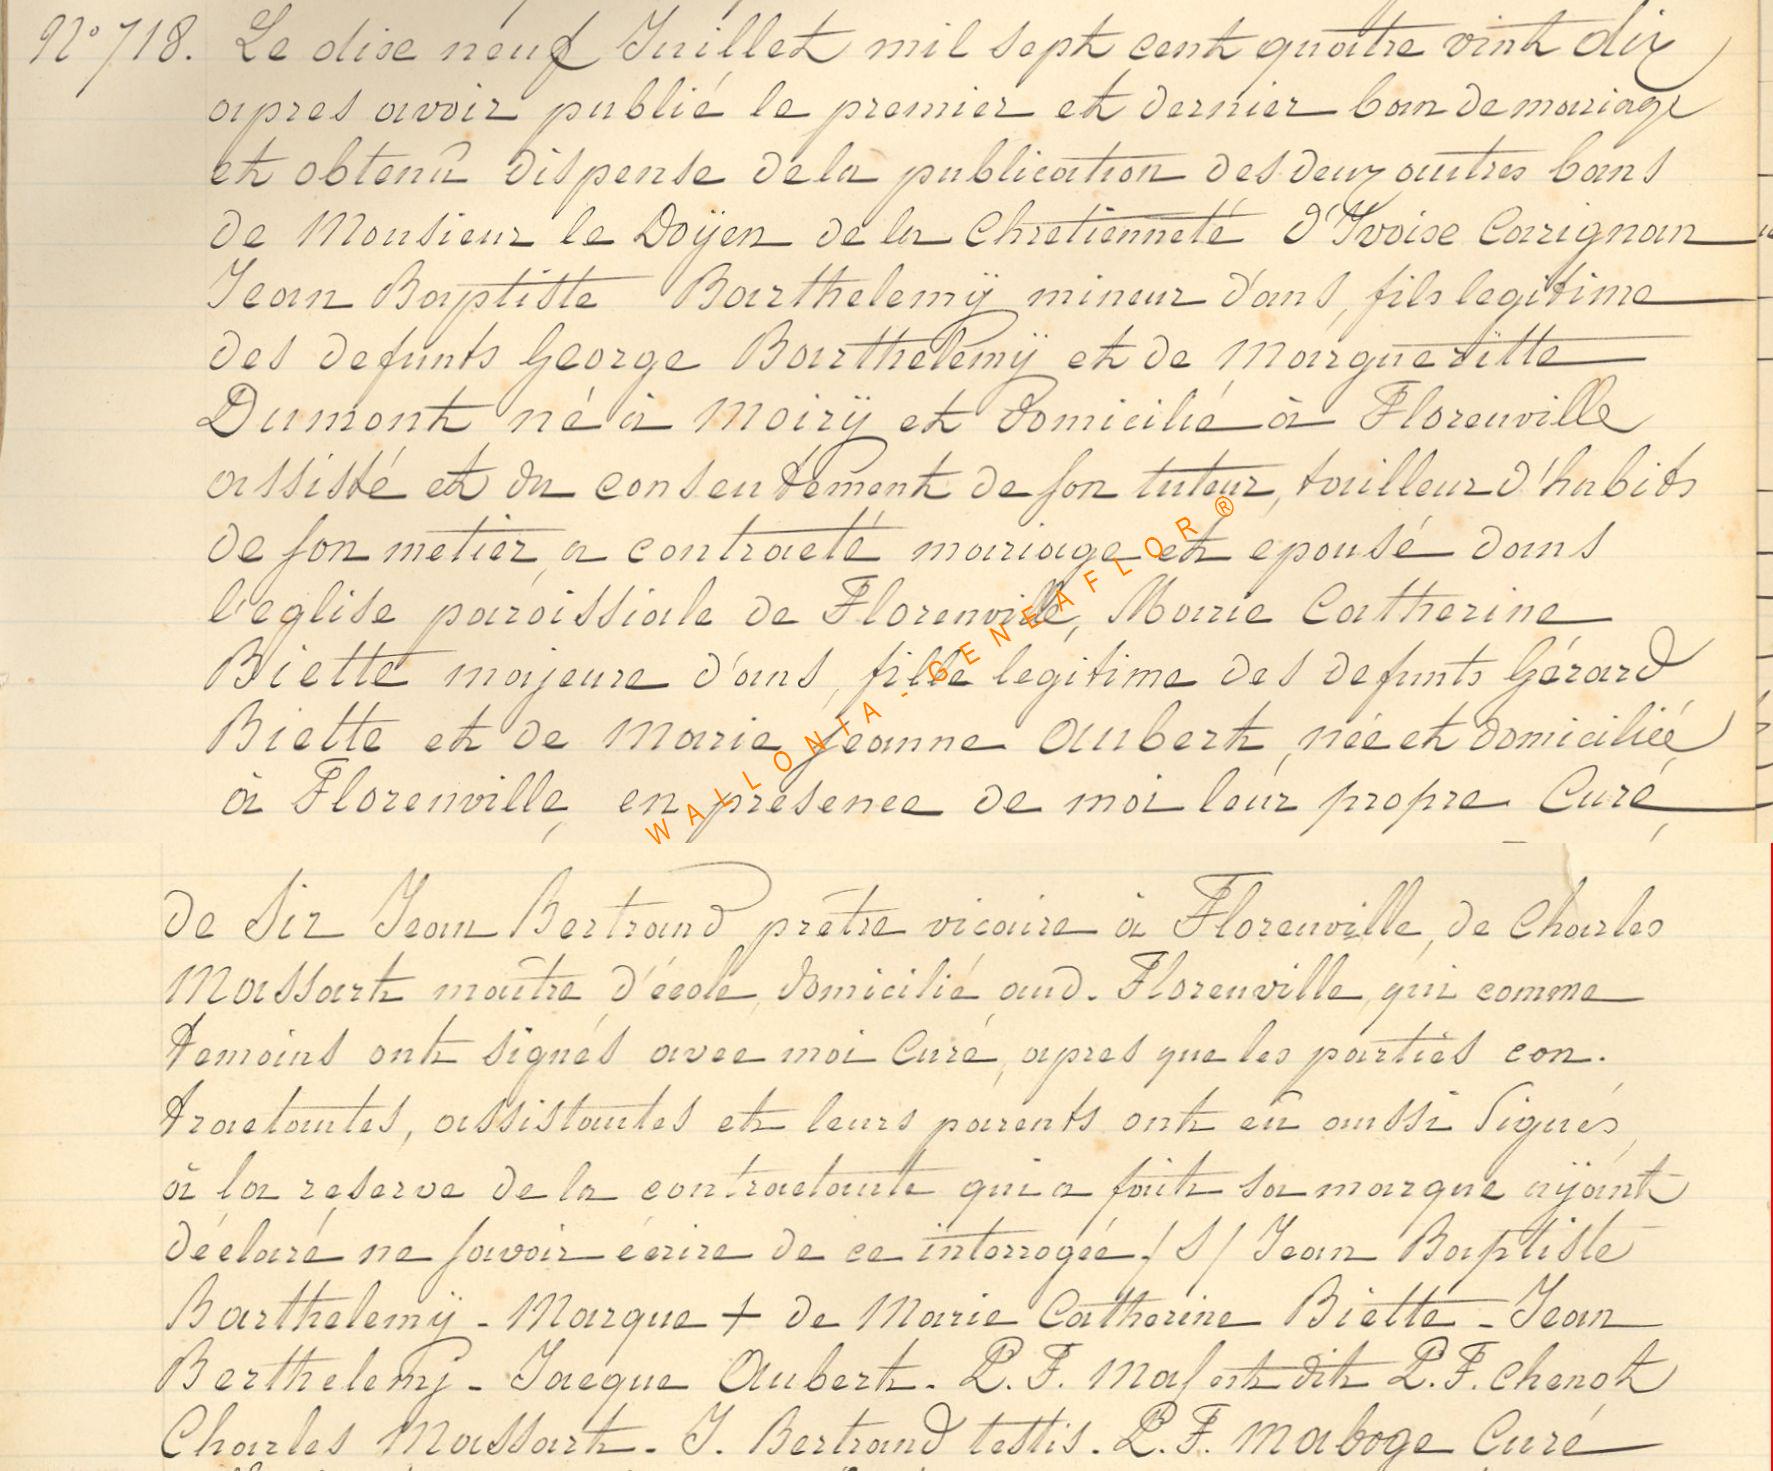 N° 718. Le dixe neuf Juillet mil sept cent quatre vint dix
apres avoir publié le premier et dernier ban de mariage
et obtenû dispense de la publication des deux autres bans
de Monsieur le Doÿen de la Chretienneté d'Yvoise Carignan
Jean Baptiste Barthelemÿ mineur d'ans, fils legitime
des defunts George Barthelemÿ et de Margueritte
Dumont né à Moirÿ et domicilié à Florenville
assisté et du consentement de son tuteur, tailleur d'habits
de son metier, a contracté mariage et epousé dans
l'eglise paroissiale de Florenville, Marie Catherine
Biette majeure d'ans, fille legitime des defunts Gérard
Biette et de Marie Jeanne Aubert, née et domiciliée
à Florenville, en presence de moi leur propre Curé,
de Sir Jean Bertrand prêtre vicaire à Florenville, de Charles
Massart maître d'école, domicilié aud. Florenville, qui comme
temoins ont signés avec moi Curé, apres que les parties con.
tractantes, assistantes et leurs parents ont eû aussi signés,
à la reserve de la contractante qui a fait sa marque aÿant
déclaré ne savoir écrire de ce interrogée /S/ Jean Baptiste
Barthelemÿ - Marque + de Marie Catherine Biette - Jean
Berthelemÿ - Jacque Aubert. P. F. dit P. F. Chenot
Charles Massart. J. Bertrand testis. P. F. Maboge Curé
WALLONIA - GENEAFLOR ®